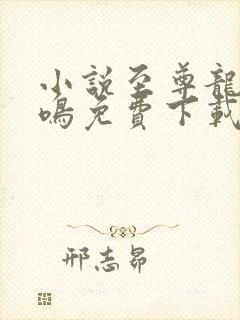 小說至尊龍
鳴免費下載
邢志昂